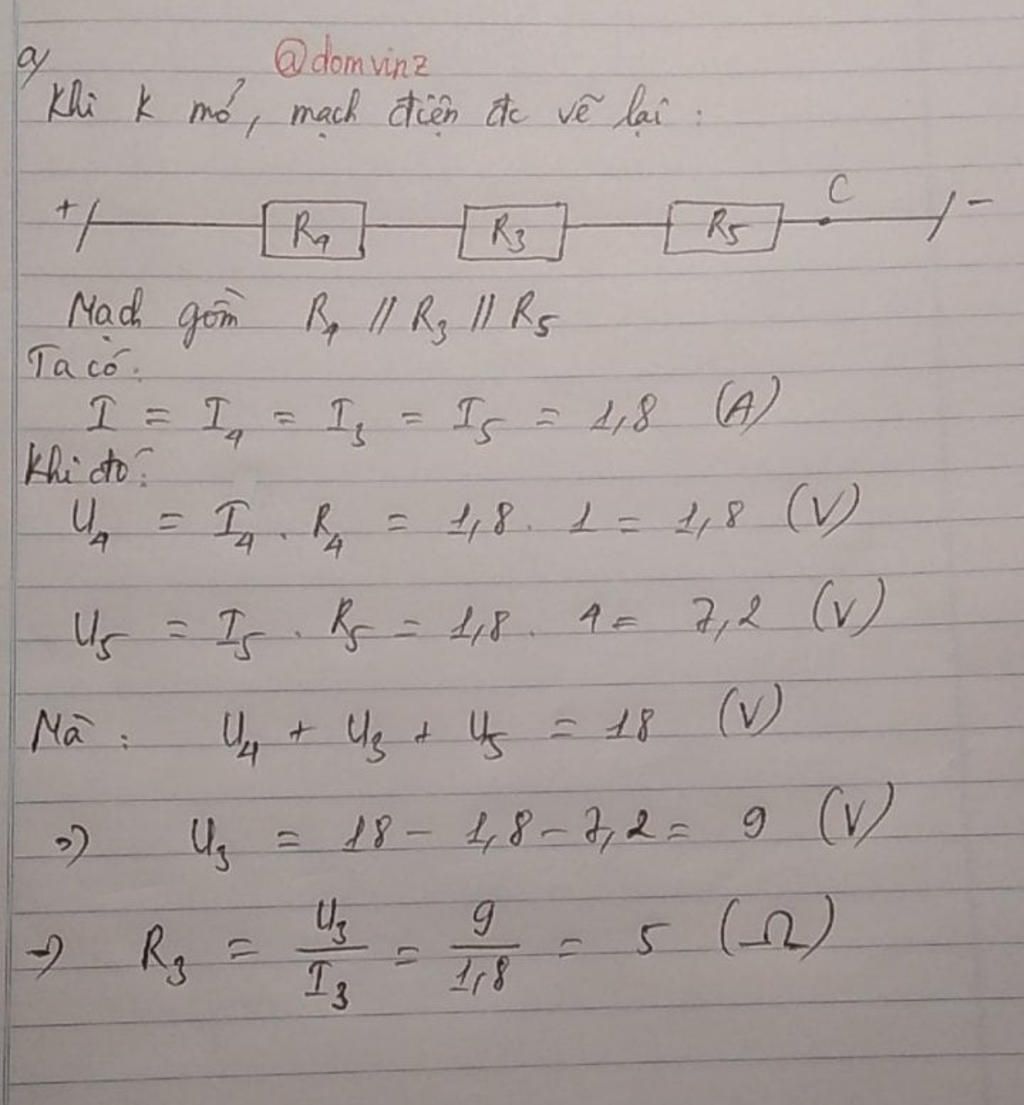 a)
@domvinz
Khi k mở, mạch điện đc vẽ lại :
+ R4 R3 R5 C -
Mạch gồm R4 // R3 // R5
Ta có:
I = I4 = I3 = I5 = 1,8 (A)
Khi đó:
U4 = I4 . R4 = 1,8 . 1 = 1,8 (V)
U5 = I5 . R5 = 1,8 . 4 = 7,2 (V)
Mà : U4 + U3 + U5 = 18 (V)
=> U3 = 18 - 1,8 - 7,2 = 9 (V)
=> R3 = U3/I3 = 9/1,8 = 5 (Ω)